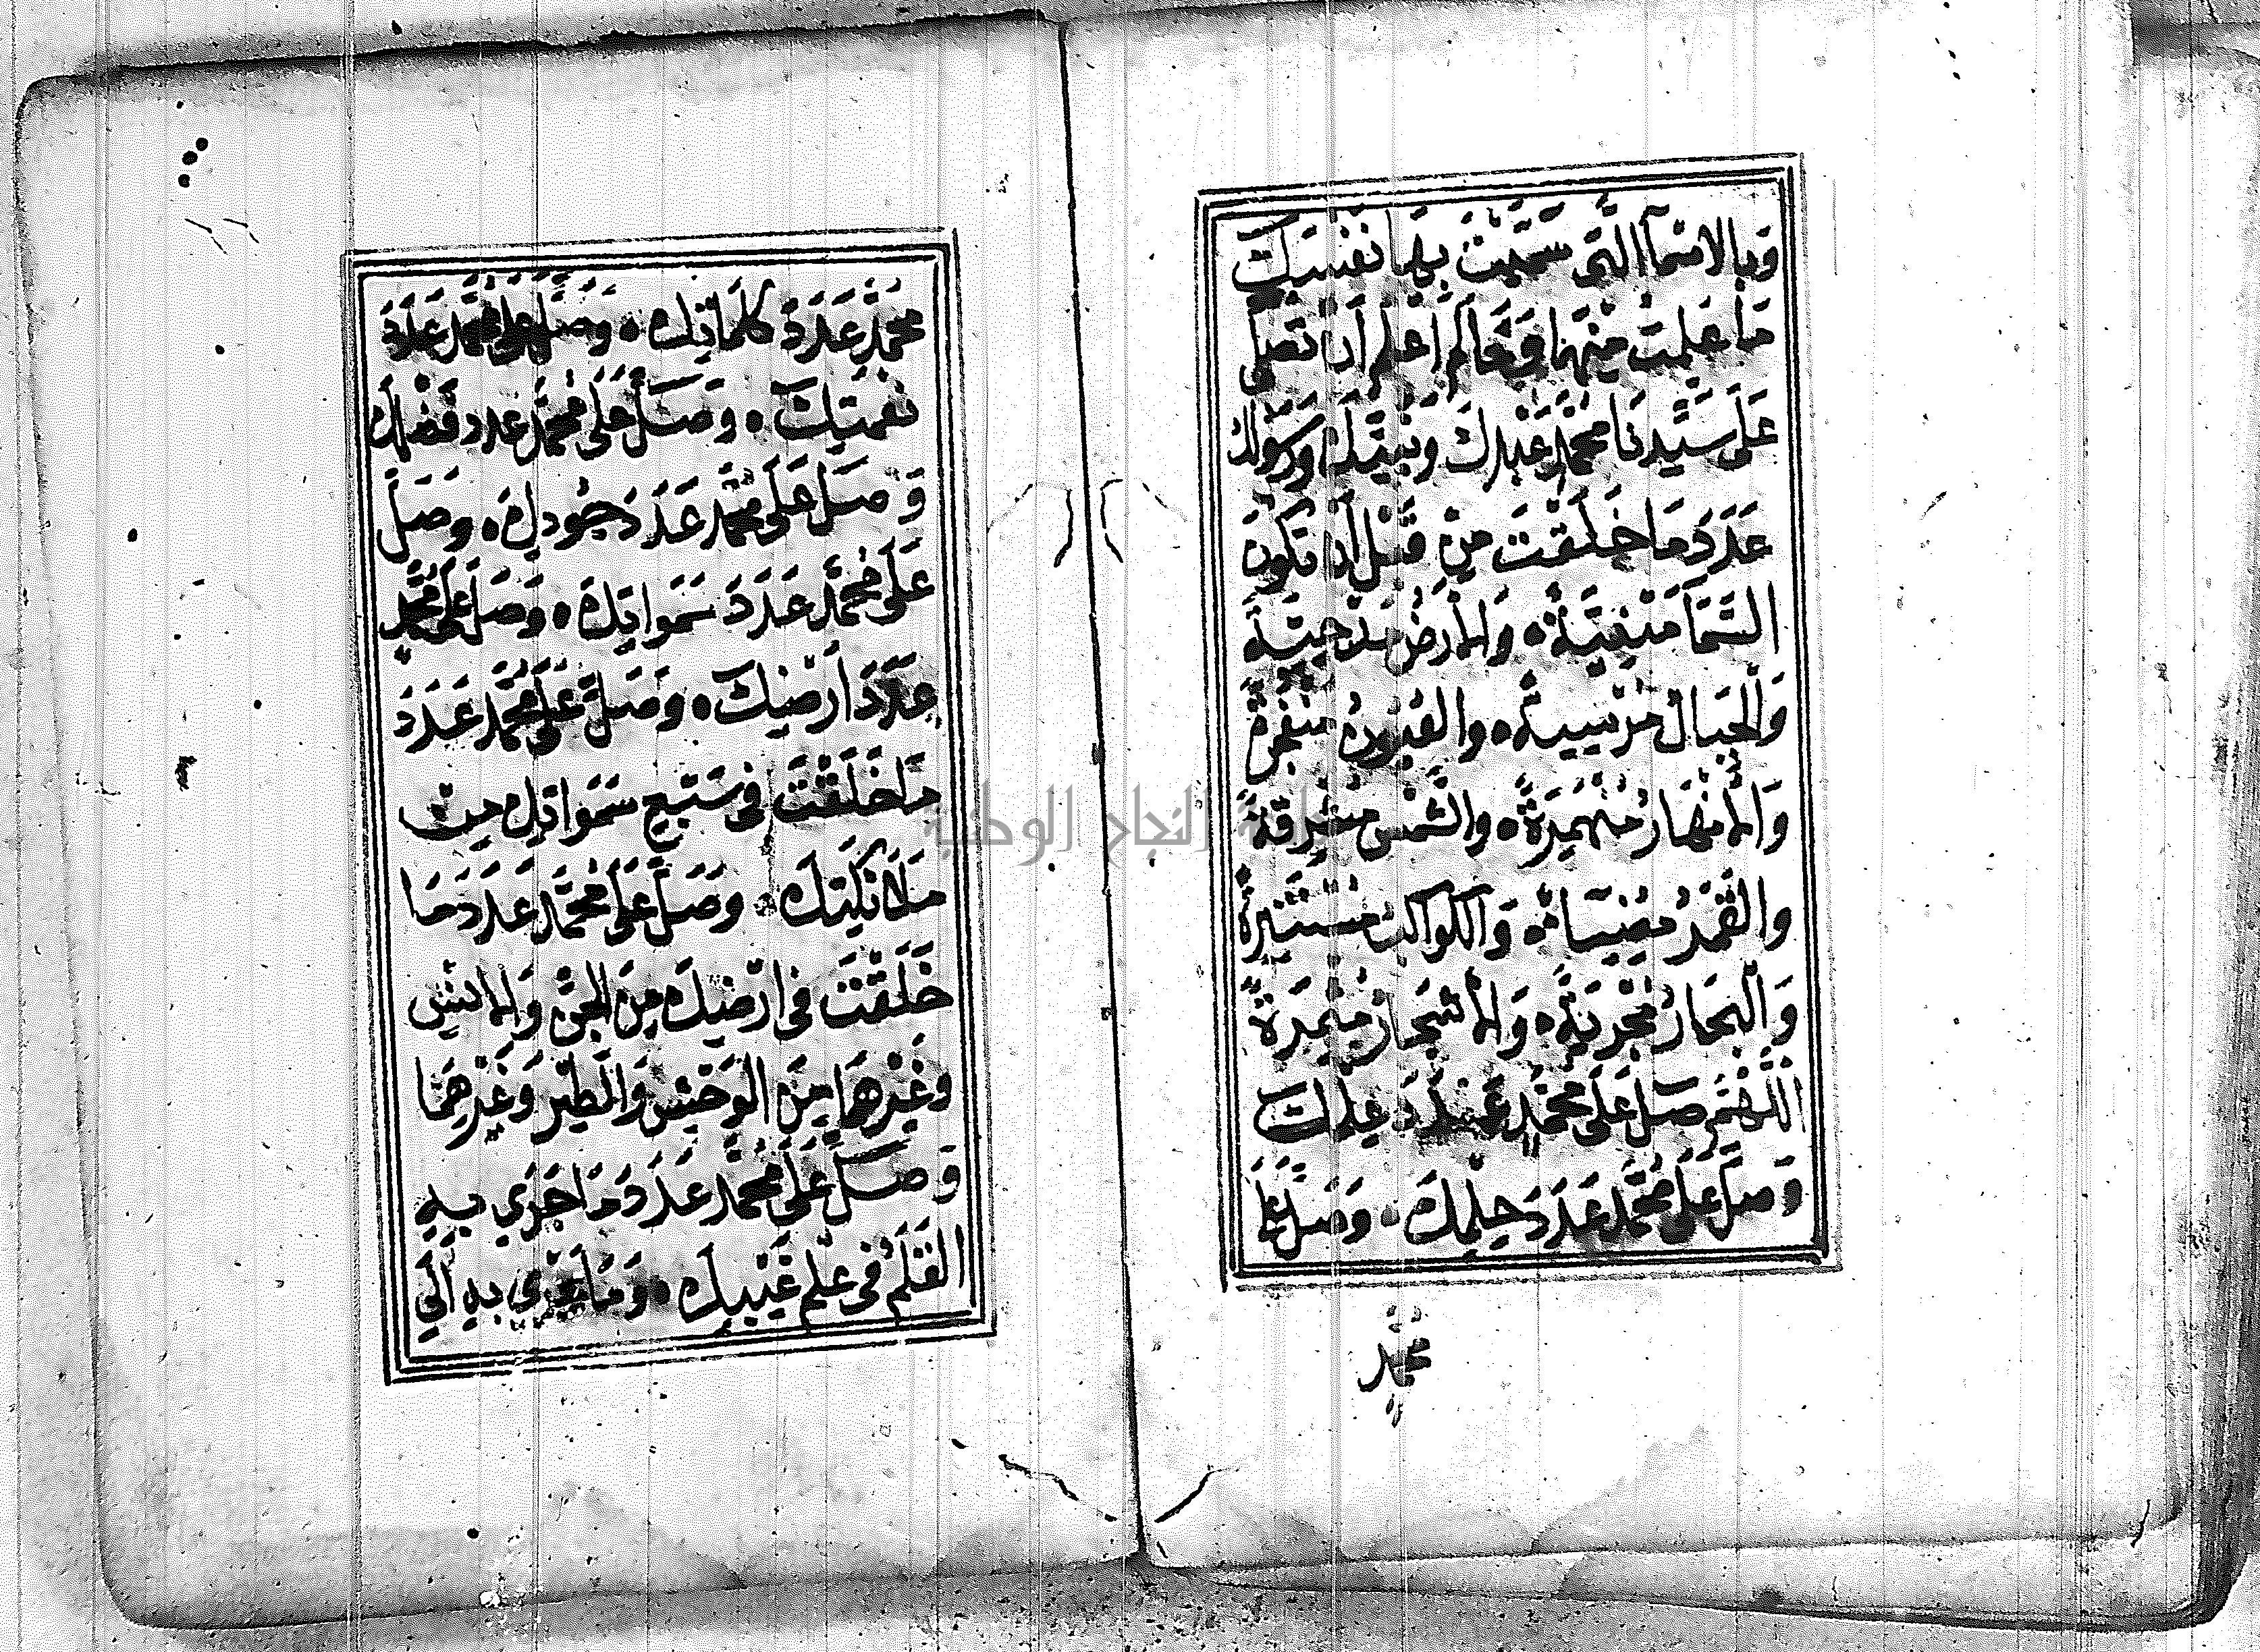 وَبِالاسْمَآ الَّتِى سَمَّيْتَ بِهَا نَفْسَكَ
مَا عَلِمْتُ مِنْهَا وَمَا لَمْ اَعْلَمْ اَنْ تُصَلِّى
عَلَى سَيِّدِنَا مُحَمَّدٍ عَبْدِكَ وَنَبِيِّكَ وَرَسُولِكَ
عَدَدَ مَا خَلَقْتَ مِنْ قَبْلِ اَنْ تَكُونَ
السَّمَآ مَبْنِيَّةً وَالْاَرْضُ مَدْحِيَّةً
وَالْجِبَالُ مُرْسِيَةً وَالْعُيُونُ مُنْفَجِرَةً
وَالْاَنْهَارُ مُنْهَمِرَةً وَالشَّمْسُ مُشْرِقَةً
وَالْقَمَرُ مُضِيئًا وَالْكَوَاكِبُ مُسْتَنِيرَةً
وَالْبِحَارُ مُجْرِيَةً وَالْاَشْجَارُ مُثْمِرَةً
اَللّٰهُمَّ صَلِّ عَلَى مُحَمَّدٍ عَدَدَ عِلْمِكَ
وَصَلِّ عَلَى مُحَمَّدٍ عَدَدَ حِلْمِكَ وَصَلِّ عَلَى
مُحَمَّدٍ
مُحَمَّدٍ عَدَدَ كَلِمَاتِكَ وَصَلِّ عَلَى مُحَمَّدٍ عَدَدَ
نِعْمَتِكَ وَصَلِّ عَلَى مُحَمَّدٍ عَدَدَ فَضْلِكَ
وَصَلِّ عَلَى مُحَمَّدٍ عَدَدَ جُودِكَ وَصَلِّ
عَلَى مُحَمَّدٍ عَدَدَ سَمَوَاتِكَ وَصَلِّ عَلَى مُحَمَّدٍ
عَدَدَ اَرْضِكَ وَصَلِّ عَلَى مُحَمَّدٍ عَدَدَ
مَا خَلَقْتَ فِى سَبْعِ سَمَوَاتِكَ مِنْ
مَلَائِكَتِكَ وَصَلِّ عَلَى مُحَمَّدٍ عَدَدَ مَا
خَلَقْتَ فِى اَرْضِكَ مِنَ الْجِنِّ وَالْاِنْسِ
وَغَيْرِهِمَا مِنَ الْوَحْشِ وَالطَّيْرِ وَغَيْرِهِمَا
وَصَلِّ عَلَى مُحَمَّدٍ عَدَدَ مَا جَرَى بِهِ
الْقَلَمُ فِى عِلْمِ غَيْبِكَ وَمَا يَجْرِى بِهِ اِلَى
النجاح الوطنية